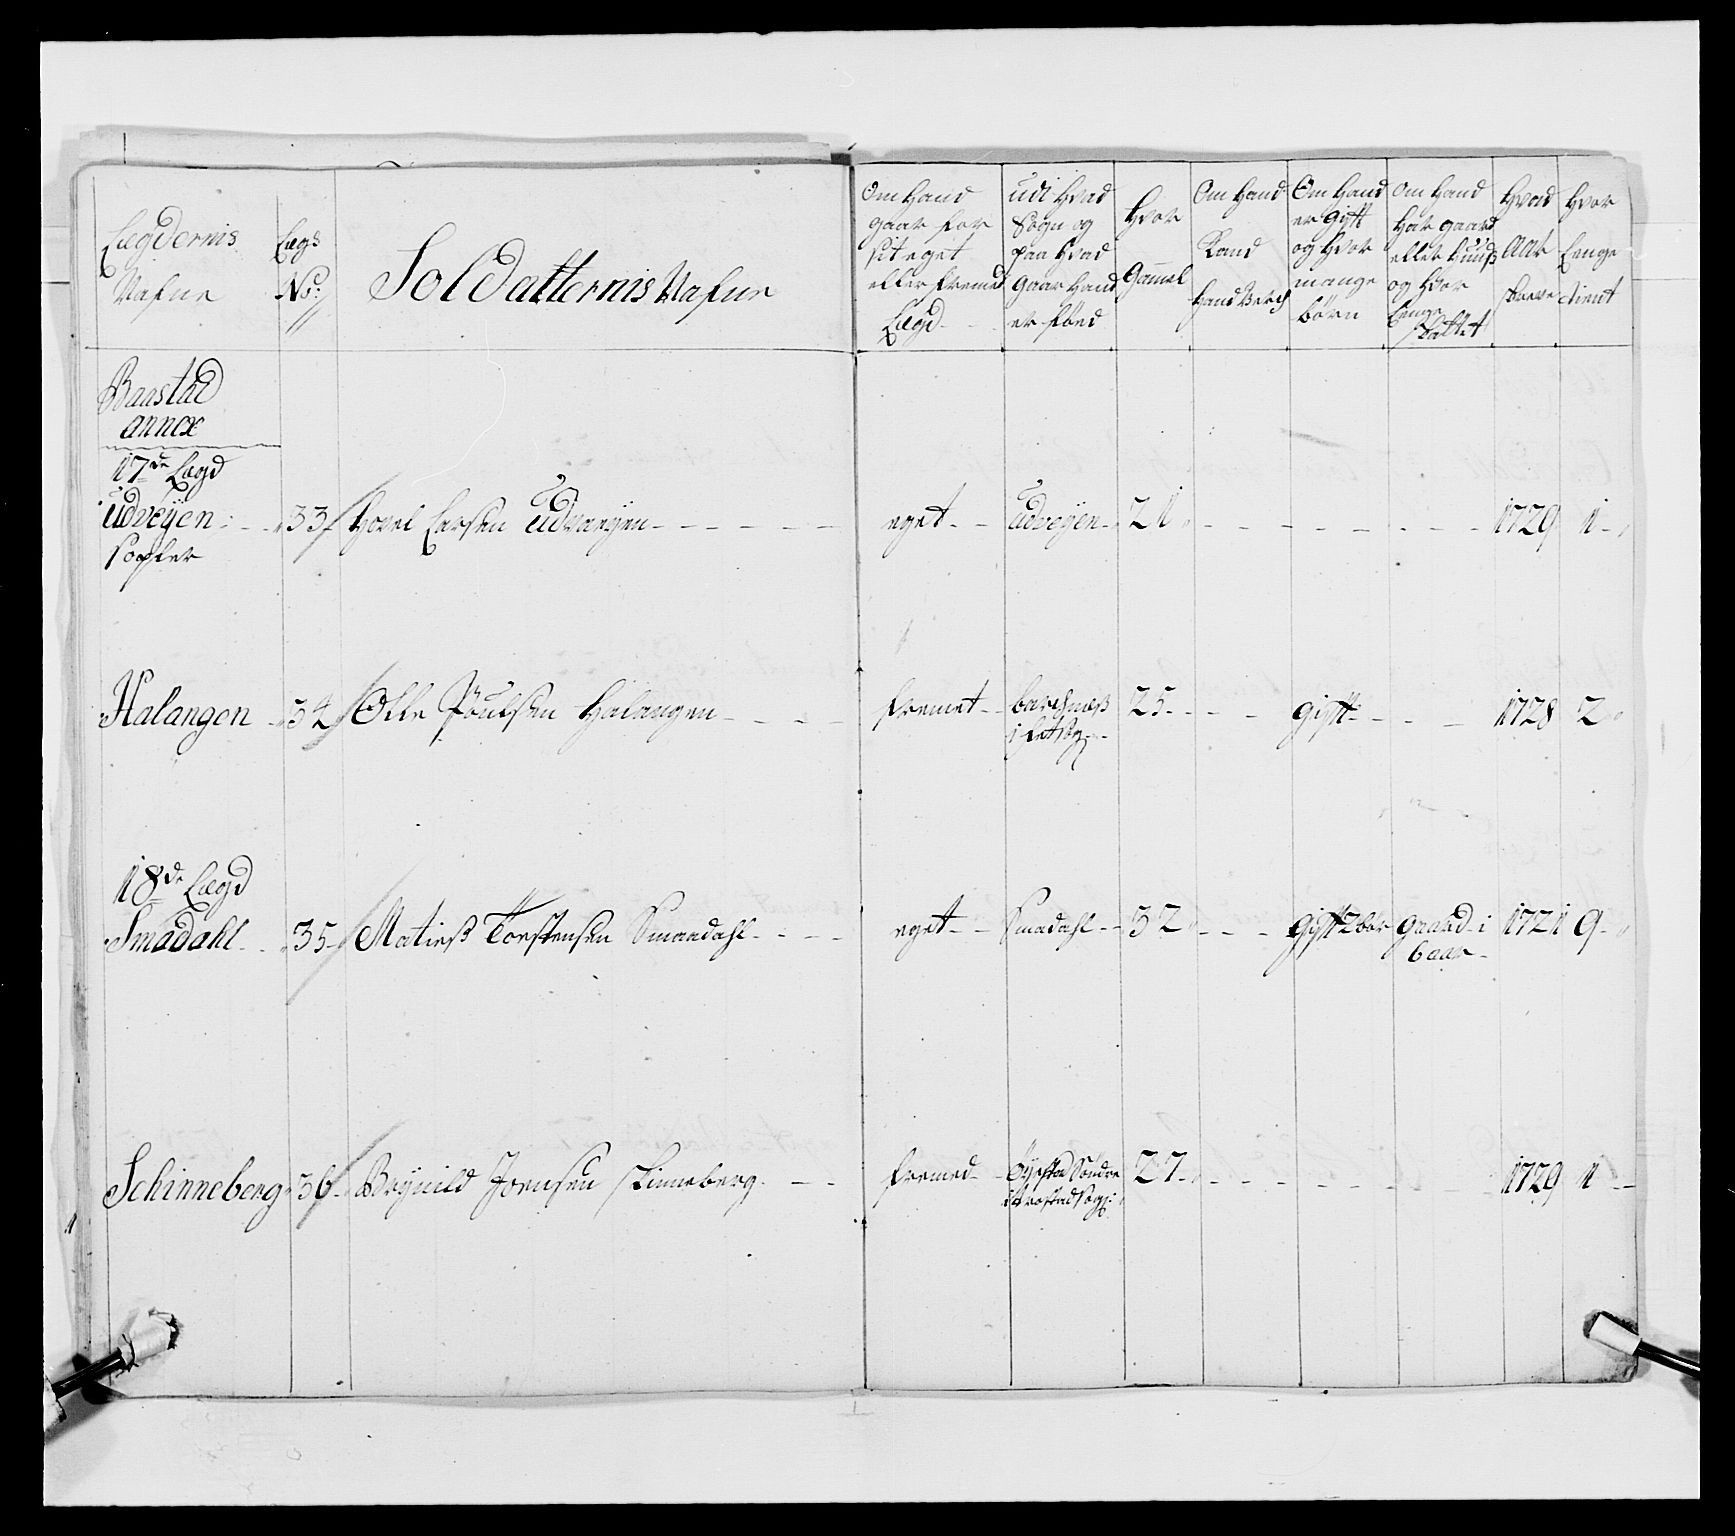 Lægdernis Nafne
Lægs No:
Soldatternis Nafne
Om Hand gaar for sit eget eller fremed Lægd
udi Hvad Sogn og paa Hvad Gaar Hand er föed
Hvor Gamel
Om Hand Kand Hand Verch
Om Hand er Gifft og Hvor mange börn
Om Hand Har gaard eller Huuß og Hvor Lenge
Hvad Aar
Hvor Lenge tient
Baastad
annex
17de Lægd
Udveÿen 33 Hovel Larsen Udvaeÿen eget Udveÿen 21 1729 1
Halangen 34 Olle Pöulsen Halangen fremet 25 gifft 1728 2
18de Lægd
Smadahl 35 Matieß Torstensen Smaadahl eget Smadahl 32 Gifft 2 bör gaard i 1721 9
baar
Schinneberg 36 Brÿnild Joensen Skinneberg fremed 27 1729 1